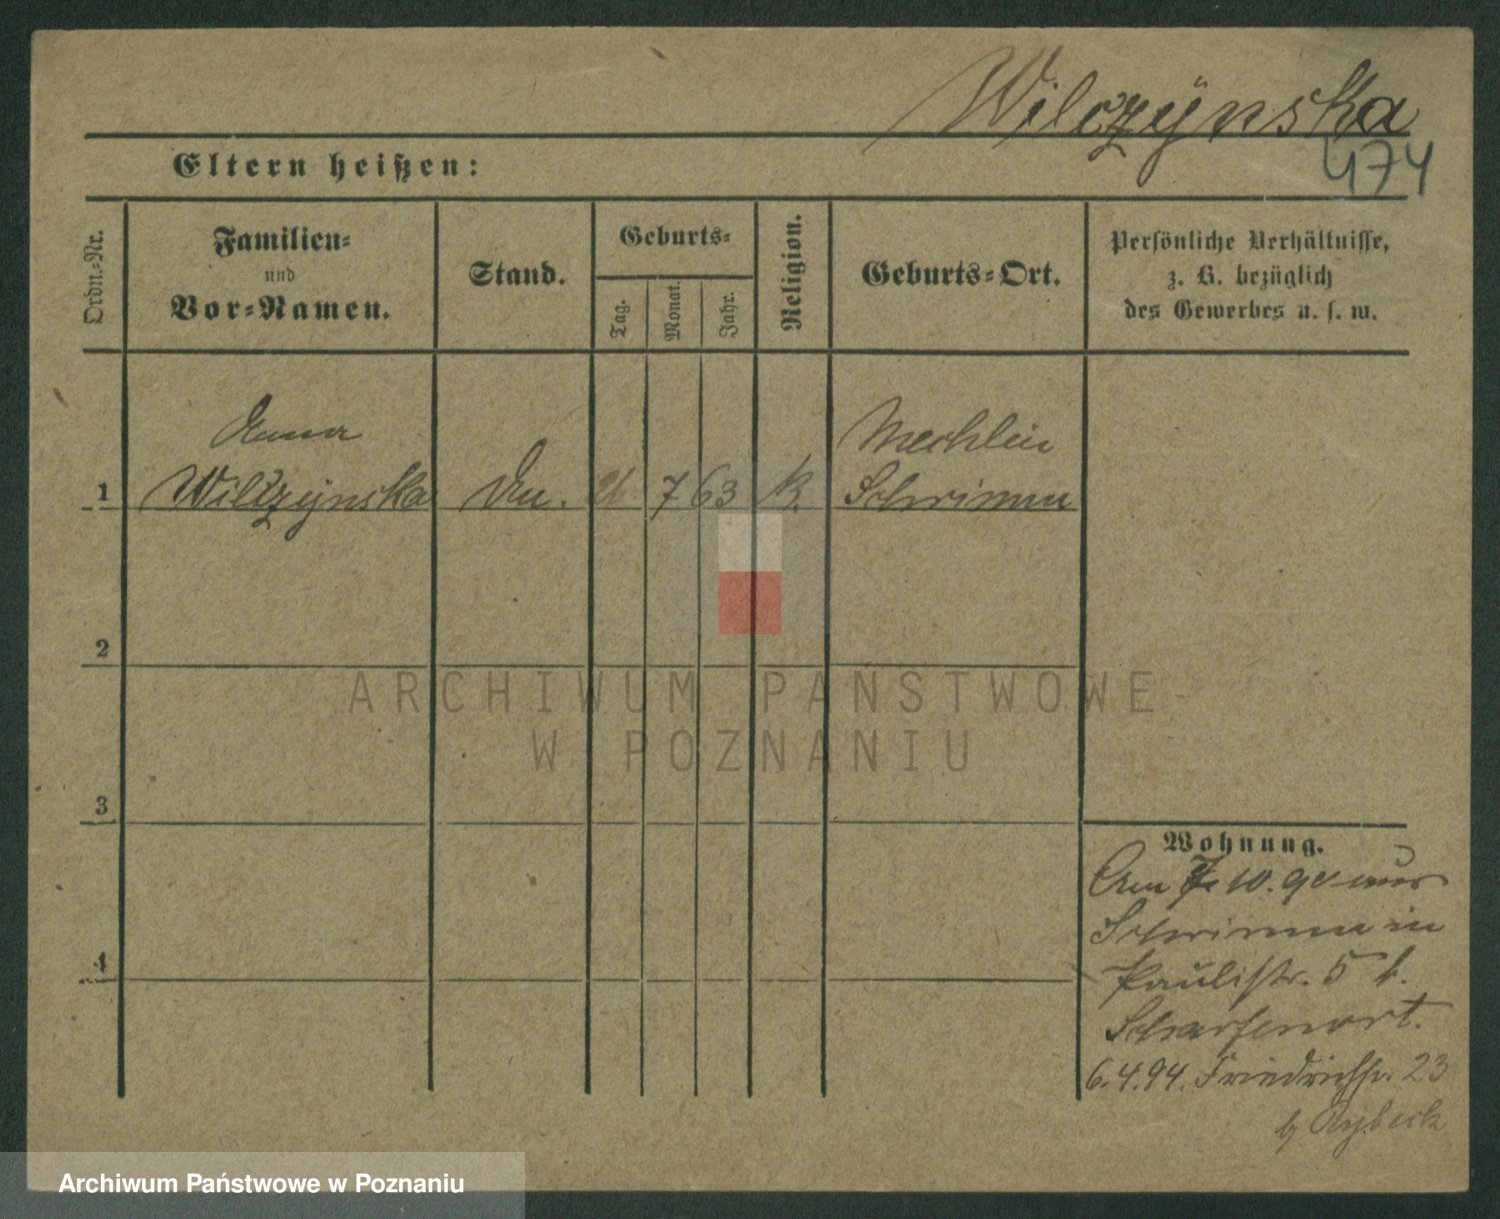 Wilczÿnska
474
Eltern heißen:
Ordn.=Nr.
Familien=
und
Vor=Namen.
Stand.
Geburts=
Tag.
Monat.
Jahr.
Religion.
Geburts=Ort.
Persönliche Verhältnisse,
z. B. bezüglich
des Gewerbes u. s. w.
Anna
Mechlin
1 Wilczÿnska 7 63 K. Schrimm
2
ARCHIWUM PAŃSTWOWE
W POZNANIU
3
Wohnung.
Am 10. 90 aus
Schrimm in
Paulistr. 5 b.
Scharfenort.
4
6.4.94. Friedrichstr. 23
b
Archiwum Państwowe w Poznaniu